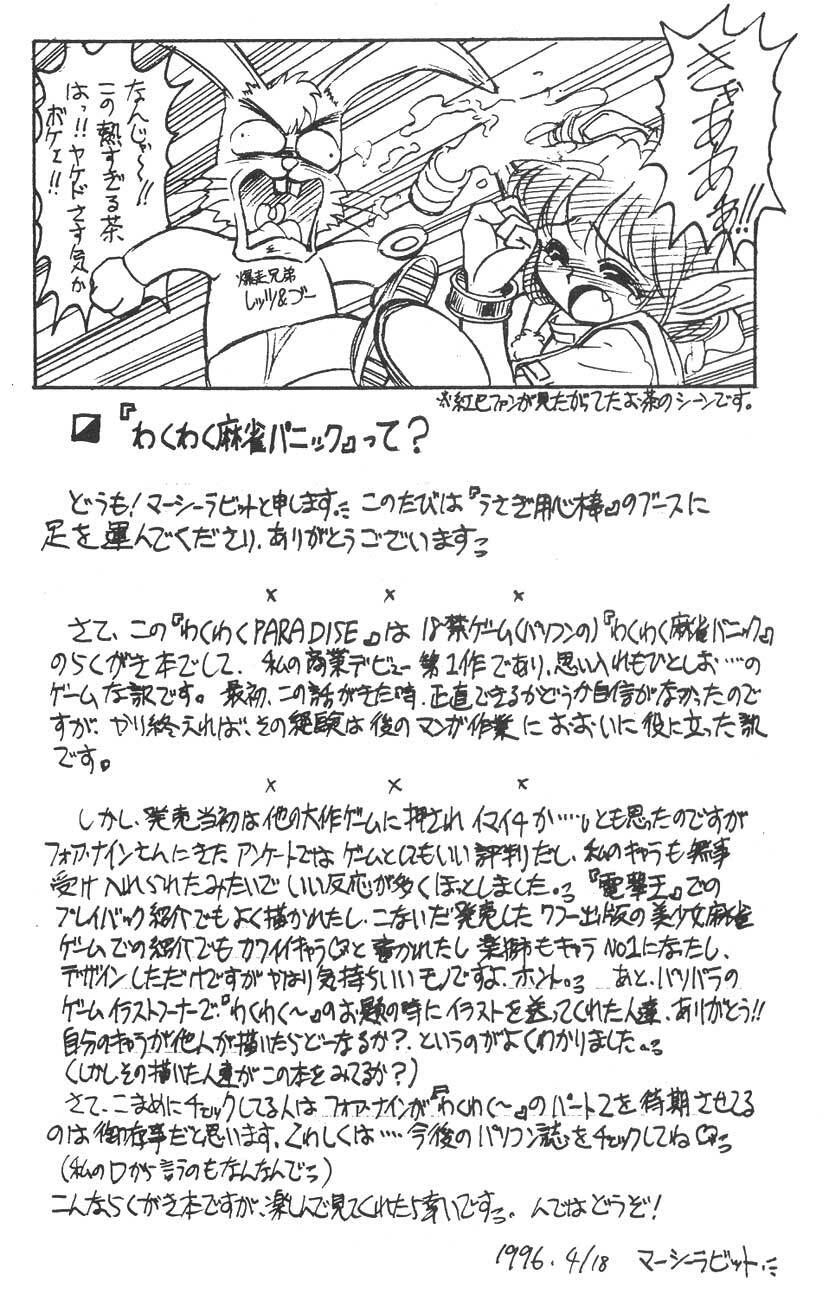 きゃあああぁ!!
なんじゃ〜!!
この熱すぎる茶
はっ!!ヤケドさす気か
ボケェ!!
爆走兄弟
レッツ&ゴー
※紅巳ファンが見たがってたお茶のシーンです。
『わくわく麻雀パニック』って?
どうも!マーシーラビットと申します。このたびは『うさぎ用心棒』のブースに
足を運んでくださり、ありがとうございます
× × ×
さて、この『わくわくPARADISE』は18禁ゲーム(パソコンの)『わくわく麻雀パニック』
のらくがき本でして、私の商業デビュー第1作であり、思い入れもひとしお……の
ゲームな訳です。最初、この話がきた時、正直できるかどうか自信がなかったので
すが、やり終えれば、その経験は後のマンガ作業におおいに役に立った訳
です。
× × ×
しかし、発売当初は他の大作ゲームに押されイマイチか……とも思ったのですが
フォア・ナインさんにきたアンケートではゲームとしてもいい評判だし、私のキャラも無事
受け入れられたみたいでいい反応が多くほっとしました。『電撃王』での
プレイバック紹介でもよく描かれたし、こないだ発売したワニー出版の美少女麻雀
ゲームでの紹介でもカワイイキャラと書かれたし薬師もキャラNO1になったし、
デザインしただけですがやはり気持ちいいモノですよ、ホント。あと、パソパラの
ゲームイラストコーナーで、『わくわく〜』のお題の時にイラストを送ってくれた人達、ありがとう!!
自分のキャラが他人が描いたらどーなるか?、というのがよくわかりました
(しかしその描いた人達がこの本をみてるか?)
さて、こまめにチェックしてる人はフォア・ナインが『わくわく〜』のパート2を待期させてる
のは御存事だと思います。くわしくは……今後のパソコン誌をチェックしてね
(私の口から言うのもなんなんで)
こんならくがき本ですが、楽しんで見てくれたら幸いです。んではどうぞ!
1996.4/18 マーシーラビット